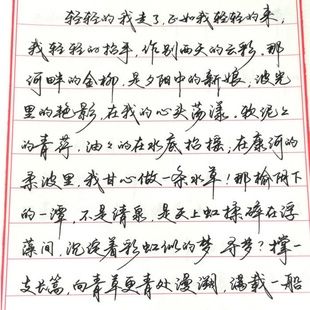 轻轻的我走了,正如我轻轻的来,
我轻轻的招手,作别西天的云彩。那
河畔的金柳,是夕阳中的新娘,波光
里的艳影,在我的心头荡漾。软泥上
的青荇,油油的在水底招摇,在康河的
柔波里,我甘心做一条水草!那榆阴下
的一潭,不是清泉,是天上虹揉碎在浮
藻间,沉淀着彩虹似的梦 寻梦?撑一
支长篙,向青草更青处漫溯,满载一船